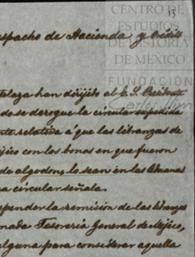 15
CENTRO DE
ESTUDIOS
DE HISTORIA
DE MÉXICO
FUNDACIÓN
Carlos Slim
espacho de Hacienda y Crédi
talaza han dirijido al E. S. Presidente
do se derogue la circular espedida
te relativa á que las libranzas de
jico con los bonos en que fueron
de algodon, lo sean en las Aduanas
a circular señala.
spender la remision de las libranz
nada Tesoreria General de Mejico,
alguna para considerar aquella